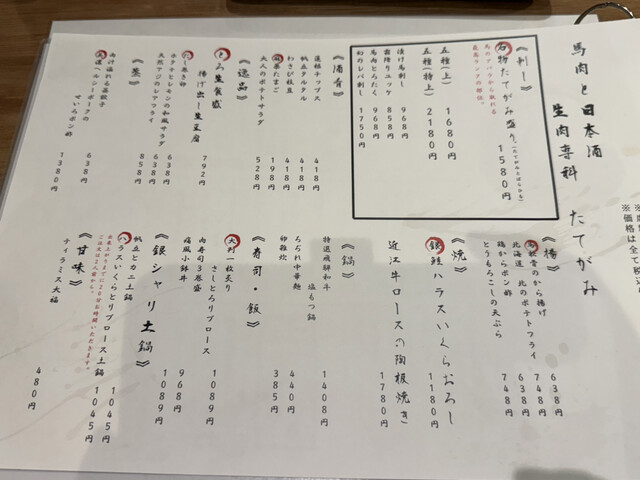 馬肉と日本酒
生肉専科 たてがみ
《刺し》
名物たてがみ盛り 1580円
五種（上） 1680円
五種（特上） 2180円
漬け馬刺し 968円
霜降りユッケ 858円
馬肉とろたく 968円
幻のレバ刺し 1750円
《酒肴》
蓮根チップス 418円
帆立タルタル 418円
わさび枝豆 198円
大人のポテトサラダ 528円
《逸品》
揚げ出し生豆腐 792円
ホタテとレモンの和風サラダ 638円
天然アジのレアフライ 858円
《蒸》
肉汁溢れる蒸餃子 638円
せいろポン酢 1380円
《椿》
北海道 北のポテトフライ
鶏からポン酢 638円
とうもろこしの天ぷら 748円
《焼》
銀鮭ハラスいくらおろし 1180円
近江牛ロースの陶板焼き 1780円
《鍋》
特選飛騨和牛
塩もつ鍋 1408円
ちぢれ中華麺 440円
卵雑炊 385円
《寿司・飯》
大判一枚炙り
さしとろリブロース 1089円
肉寿司3巻盛 968円
痛風小鉢丼 1089円
《銀シャリ土鍋》
帆立とカニ土鍋 1045円
ハラスいくらとリブロース土鍋 1045円
《甘味》
ティラミス大福 480円